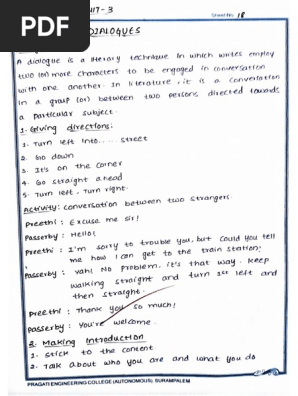 PDF
UNIT-3
Sheet No. 18
DIALOGUES
A dialogue is a literary technique in which writes employ
two (or) more characters to be engaged in conversation
with one another. In literature, it is a conversation
in a group (or) between two persons directed towards
a particular subject.
1. Giving directions:
1. Turn left into..... street
2. Go down
3. It's on the corner
4. Go straight ahead
5. Turn left, turn right.
Activity: conversation between two strangers
Preethi : Excuse me sir!
Passerby : Hello!
Preethi : I'm sorry to trouble you, but could you tell
me how I can get to the train station?
Passerby : yah! No problem, it's that way. Keep
walking straight and turn 1st left and
then straight.
preethi : Thank you so much!
passerby : You're welcome.
2. Making Introduction
1. Stick to the content.
2. Talk about who you are and what you do
PRAGATI ENGINEERING COLLEGE (AUTONOMOUS), SURAMPALEM